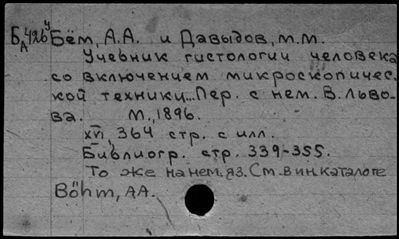 Б 426 Бём, А.А. и Давыдов, М.М.
А
Учебник гистологии человека
со включением микроскопичес.
кой техники... Пер. с нем. В. Льво-
ва. М., 1896.
XVI, 364 стр. с илл.
Библиогр. стр. 339-355.
То же на нем. яз. См. в ин. каталоге
Böhm, AA.